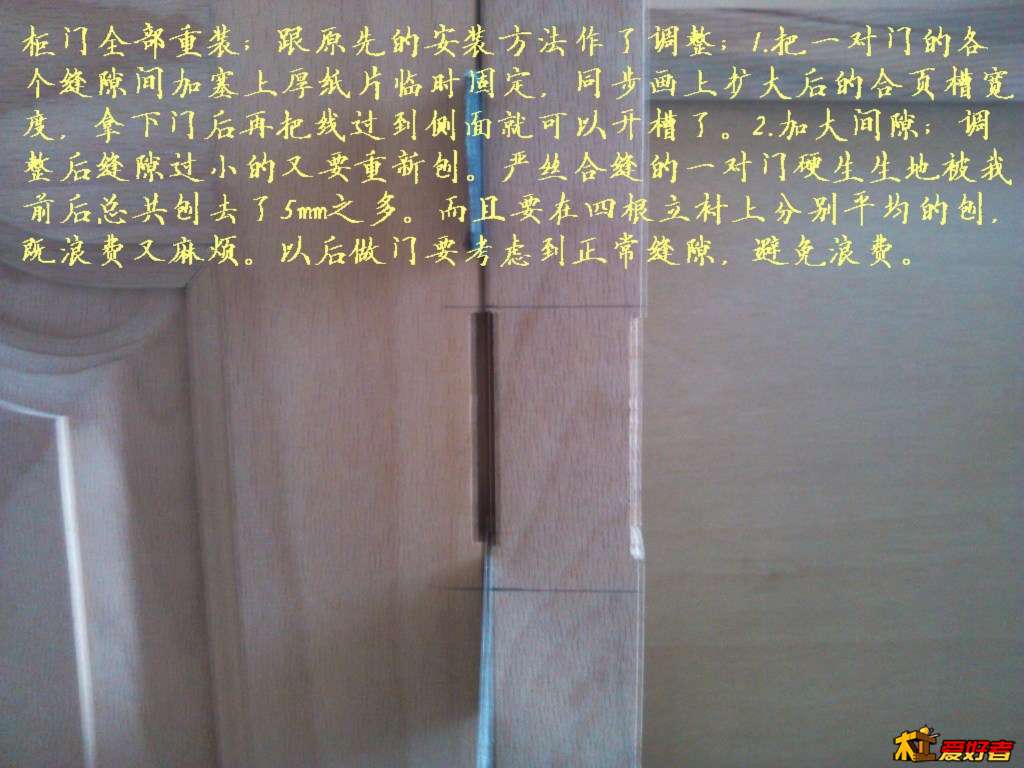 柜门全部重装；跟原先的安装方法作了调整；1.把一对门的各
个缝隙间加塞上厚纸片临时固定，同步画上扩大后的合页槽宽
度，拿下门后再把线过到侧面就可以开槽了。2.加大间隙；调
整后缝隙过小的又要重新刨。严丝合缝的一对门硬生生地被我
前后总共刨去了5mm之多。而且要在四根立衬上分别平均的刨，
既浪费又麻烦。以后做门要考虑到正常缝隙，避免浪费。
木工爱好者